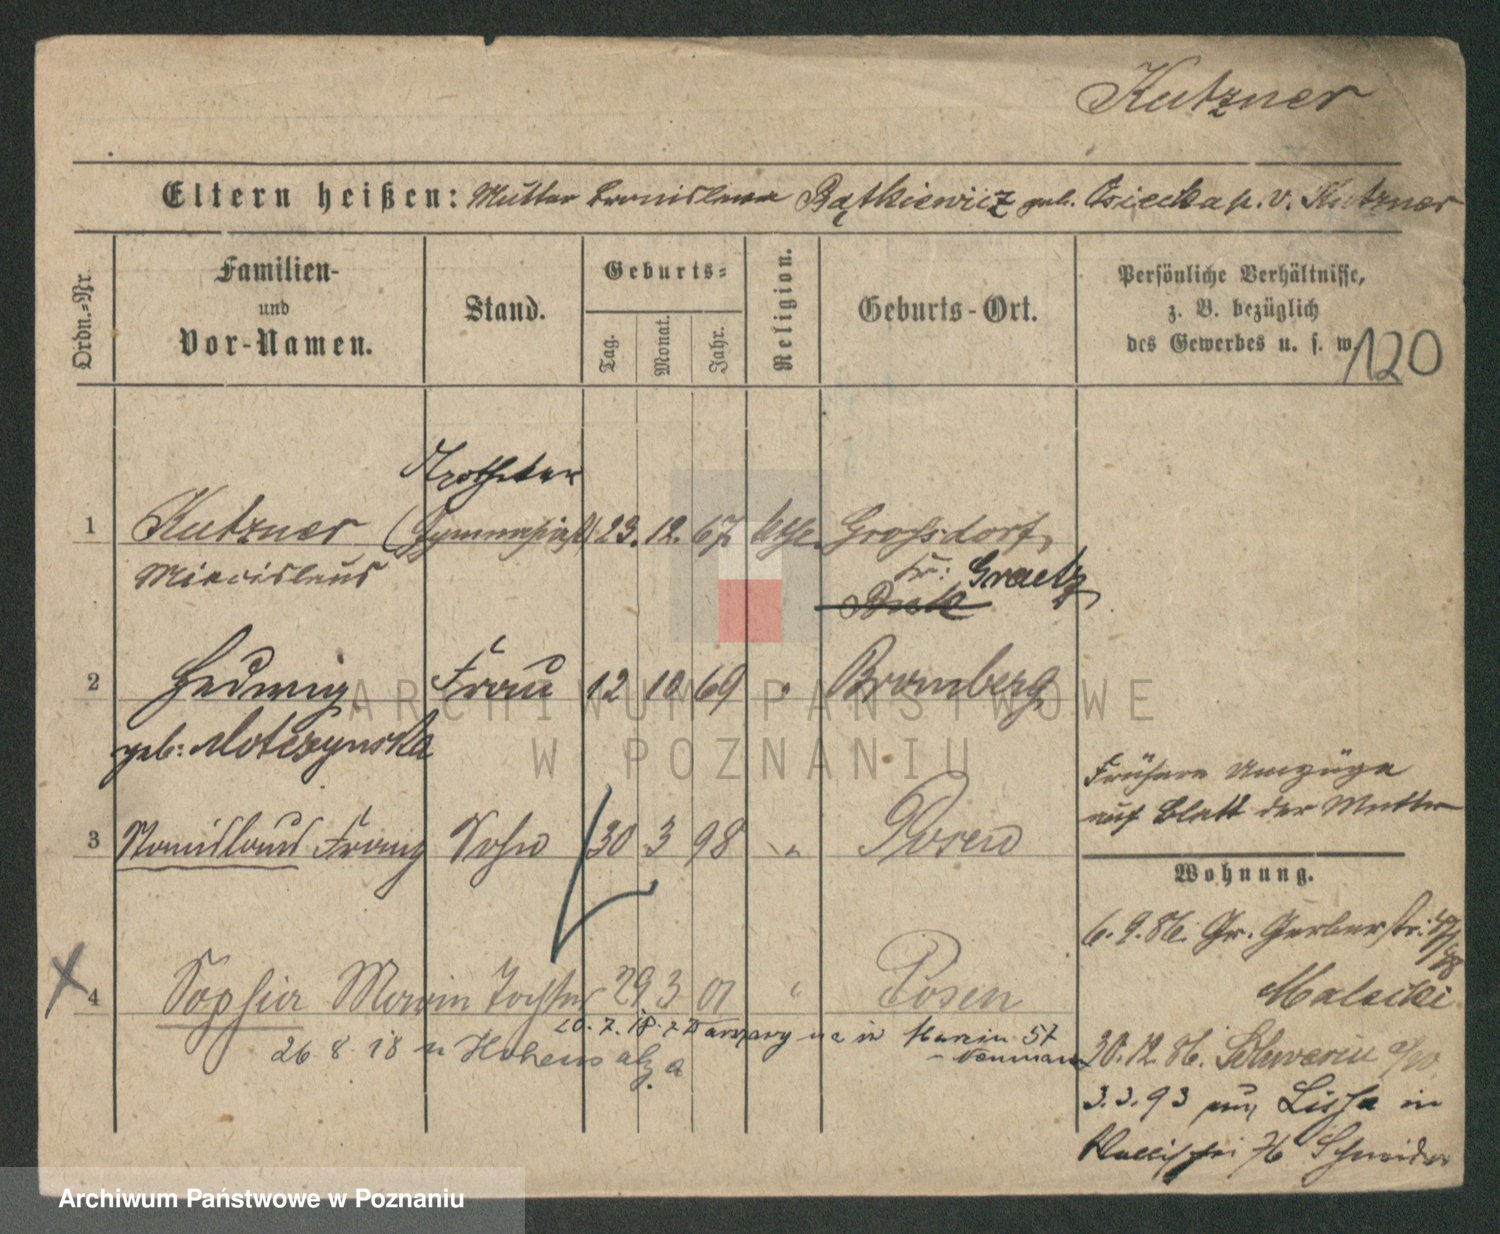 Kutzner
Eltern heißen: Mutter Bronislawa Bątkiewicz geb. Osiecka p. v. Kutzner
Ordn.-Nr.
Familien-
und
Vor-Namen.
Stand.
Geburts-
Tag.
Monat.
Jahr.
Religion.
Geburts-Ort.
Persönliche Verhältnisse,
z. B. bezüglich
des Gewerbes u. s. w.
120
Apotheker
1 Kutzner (Gymnasiast) 23. 12. 67 kth. Grossdorf,
Miecislaus
Kr: Graetz
Buk
2 Hedwig Frau 12 10 69 " Bromberg
geb: Motczynska
Frühere Umzüge
auf Blatt der Mutter
3 Stanislaus Franz Sohn 30 3 98 " Posen
Wohnung.
6. 9. 86. Gr. Gerberstr. 47/48
Malecki
4 Sophia Maria Tochter 29 3 01 " Posen
20. 7. 18. z Martin 57
26. 8. 18 n Hohensalza
30. 12. 86. Schwerin a/W
3. 3. 93 aus Lissa in
Wallischei 76 Schneider
ARCHIWUM PAŃSTWOWE
W POZNANIU
Archiwum Państwowe w Poznaniu